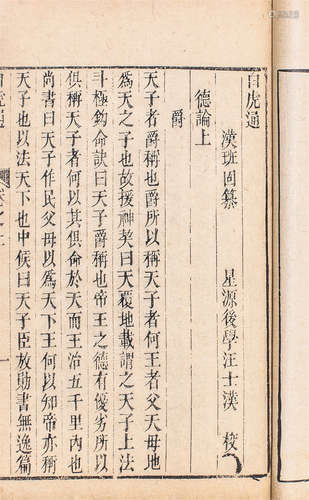 白虎通
漢班固纂 星源後學汪士漢 校
德論上
爵
天子者爵稱也爵所以稱天子者何王者父天母地
為天之子也故援神契曰天覆地載謂之天子上法
斗極鉤命訣曰天子爵稱也帝王之德有優劣所以
俱稱天子者何以其俱命於天而王治五千里內也
尚書曰天子作民父母以為天下王何以知帝亦稱
天子也以法天下也中候曰天子臣放勛書無逸篇